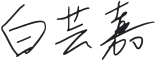 白芸嘉